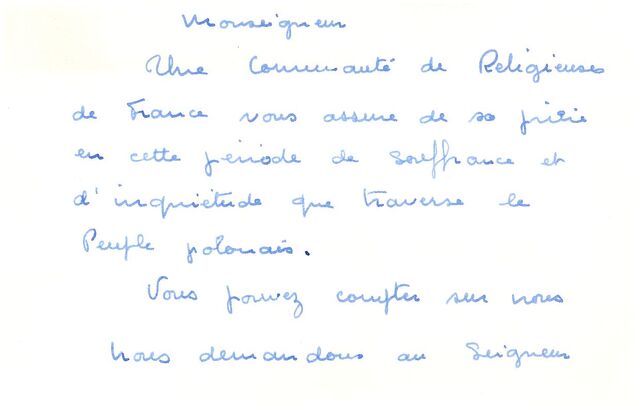 Monseigneur
Une Communauté de Religieuses
de France vous assure de sa prière
en cette période de souffrance et
d'inquiétude que traverse le
Peuple polonais.
Vous pouvez compter sur nous
Nous demandons au Seigneur